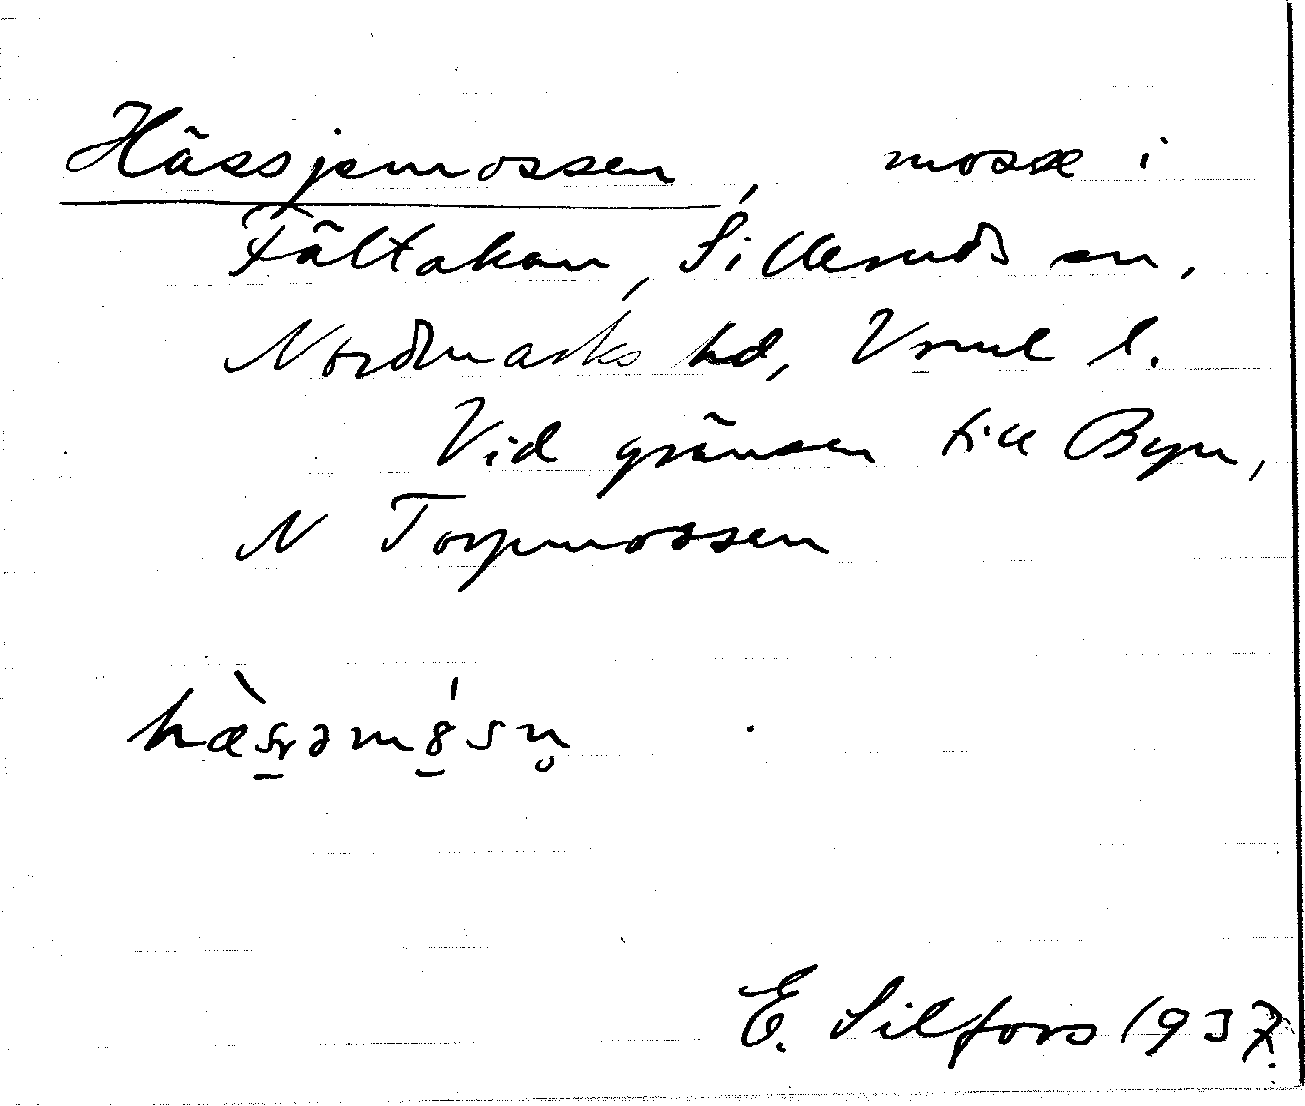 Hässjemossen, mosse i
Fältakan, Silleruds sn,
Nordmarks hd, Vrml l.
Vid gränsen till Byn,
N Torpmossen
E. Silfors 1937.